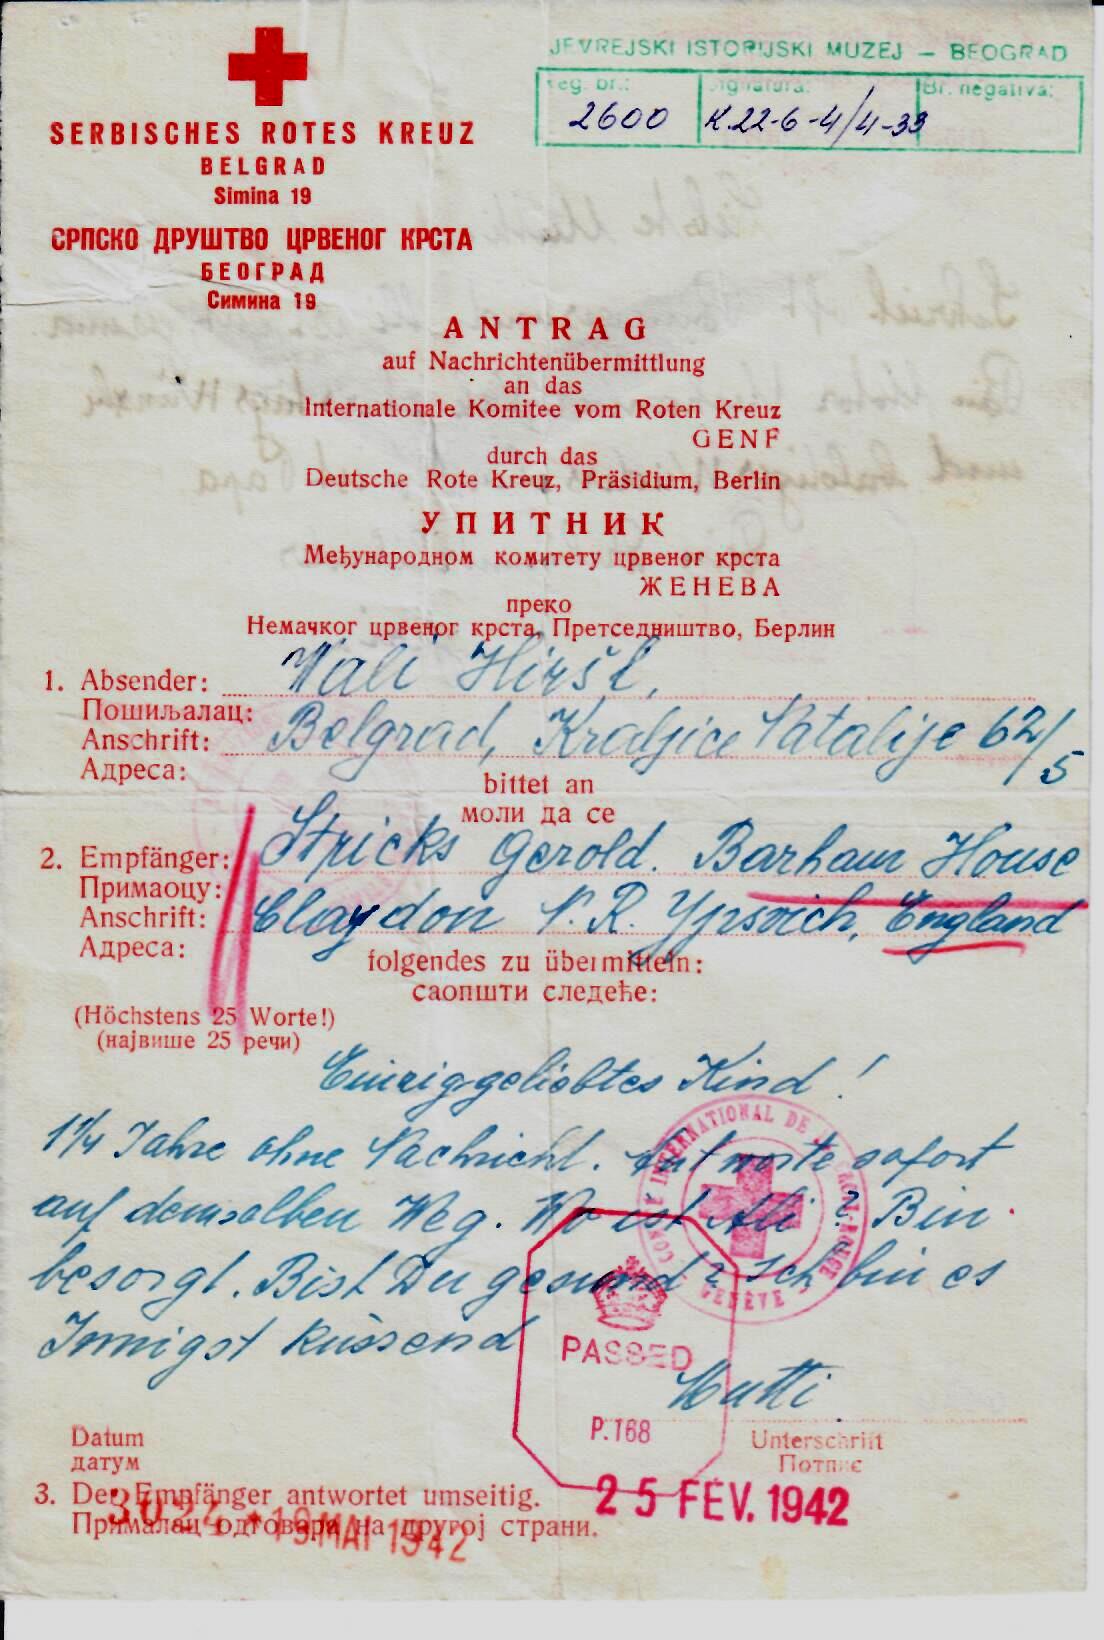 JEVREJSKI ISTORIJSKI MUZEJ — BEOGRAD
Reg. br.: Signatura: Br. negativa:
2600 K.22-6-4/4-33
SERBISCHES ROTES KREUZ
BELGRAD
Simina 19
СРПСКО ДРУШТВО ЦРВЕНОГ КРСТА
БЕОГРАД
Симина 19
ANTRAG
auf Nachrichtenübermittlung
an das
Internationale Komitee vom Roten Kreuz
GENF
durch das
Deutsche Rote Kreuz, Präsidium, Berlin
УПИТНИК
Међународном комитету црвеног крста
ЖЕНЕВА
преко
Немачког црвеног крста, Претседништво, Берлин
1. Absender: Wali Hiršl,
Пошиљалац:
Anschrift: Belgrad, Kraljice Natalije 62/5
Адреса:
bittet an
моли да се
2. Empfänger: Stricks Gerold. Barham House
Примаоцу:
Anschrift: Claydon N. R. Ypsvich, England
Адреса:
folgendes zu übermitteln:
саопшти следеће:
(Höchstens 25 Worte!)
(највише 25 речи)
Einziggeliebtes Kind!
1 1/4 Jahre ohne Nachricht. Antworte sofort
auf demselben Weg. Wo ist Ali? Bin
besorgt. Bist Du gesund? Ich bin es
Innigst küssend
Mutti
COMITÉ INTERNATIONAL DE LA CROIX-ROUGE
GENÈVE
PASSED
P.168
Datum
датум
Unterschrift
Потпис
3. Der Empfänger antwortet umseitig.
Прималац одговара на другој страни.
25 FÉV. 1942
3024 * 19 MAI 1942